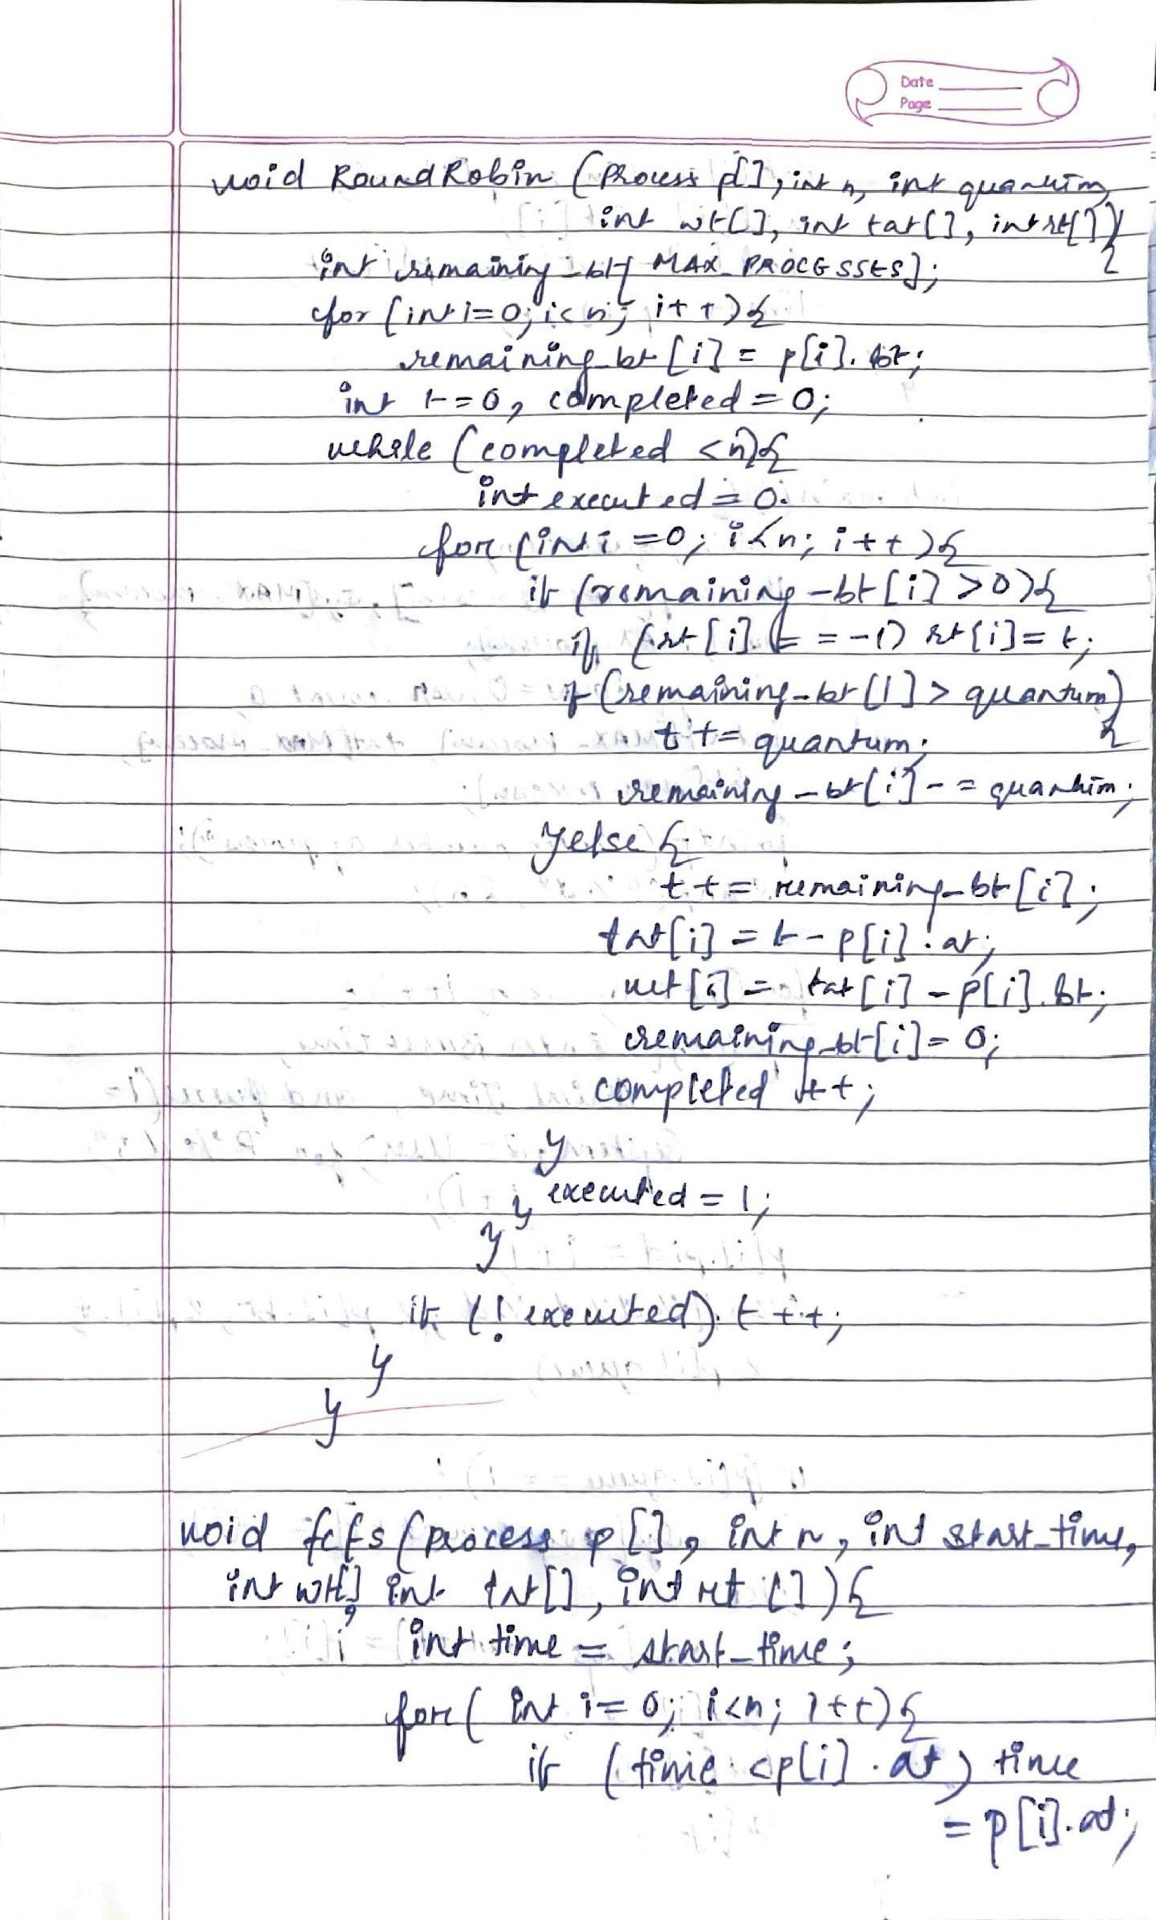 Date
Page
void RoundRobin (Process p[], int n, int quantum,
int wt[], int tat[], int rt[]) {
int remaining_bt[MAX_PROCESSES];
for (int i=0; i<n; i++) {
remaining_bt [i] = p[i].bt;
int t=0, completed = 0;
while (completed <n) {
int executed = 0.
for (int i =0; i<n; i++) {
if (remaining_bt [i] >0) {
if (rt [i] == -1) rt[i]= t;
if (remaining_bt [i] > quantum) {
t += quantum;
remaining_bt[i] -= quantum;
} else {
t += remaining_bt [i];
tat[i] = t - p[i].at;
wt [i] = tat [i] - p[i].bt;
remaining_bt[i] = 0;
completed ++;
}
} executed = 1;
}
}
if (! executed) t ++;
}
}
void fcfs (process p [], int n, int start_time,
int wt[], int tat[], int rt []) {
int time = start_time;
for( int i= 0; i<n; i++) {
if (time <p[i].at) time
= p[i].at;